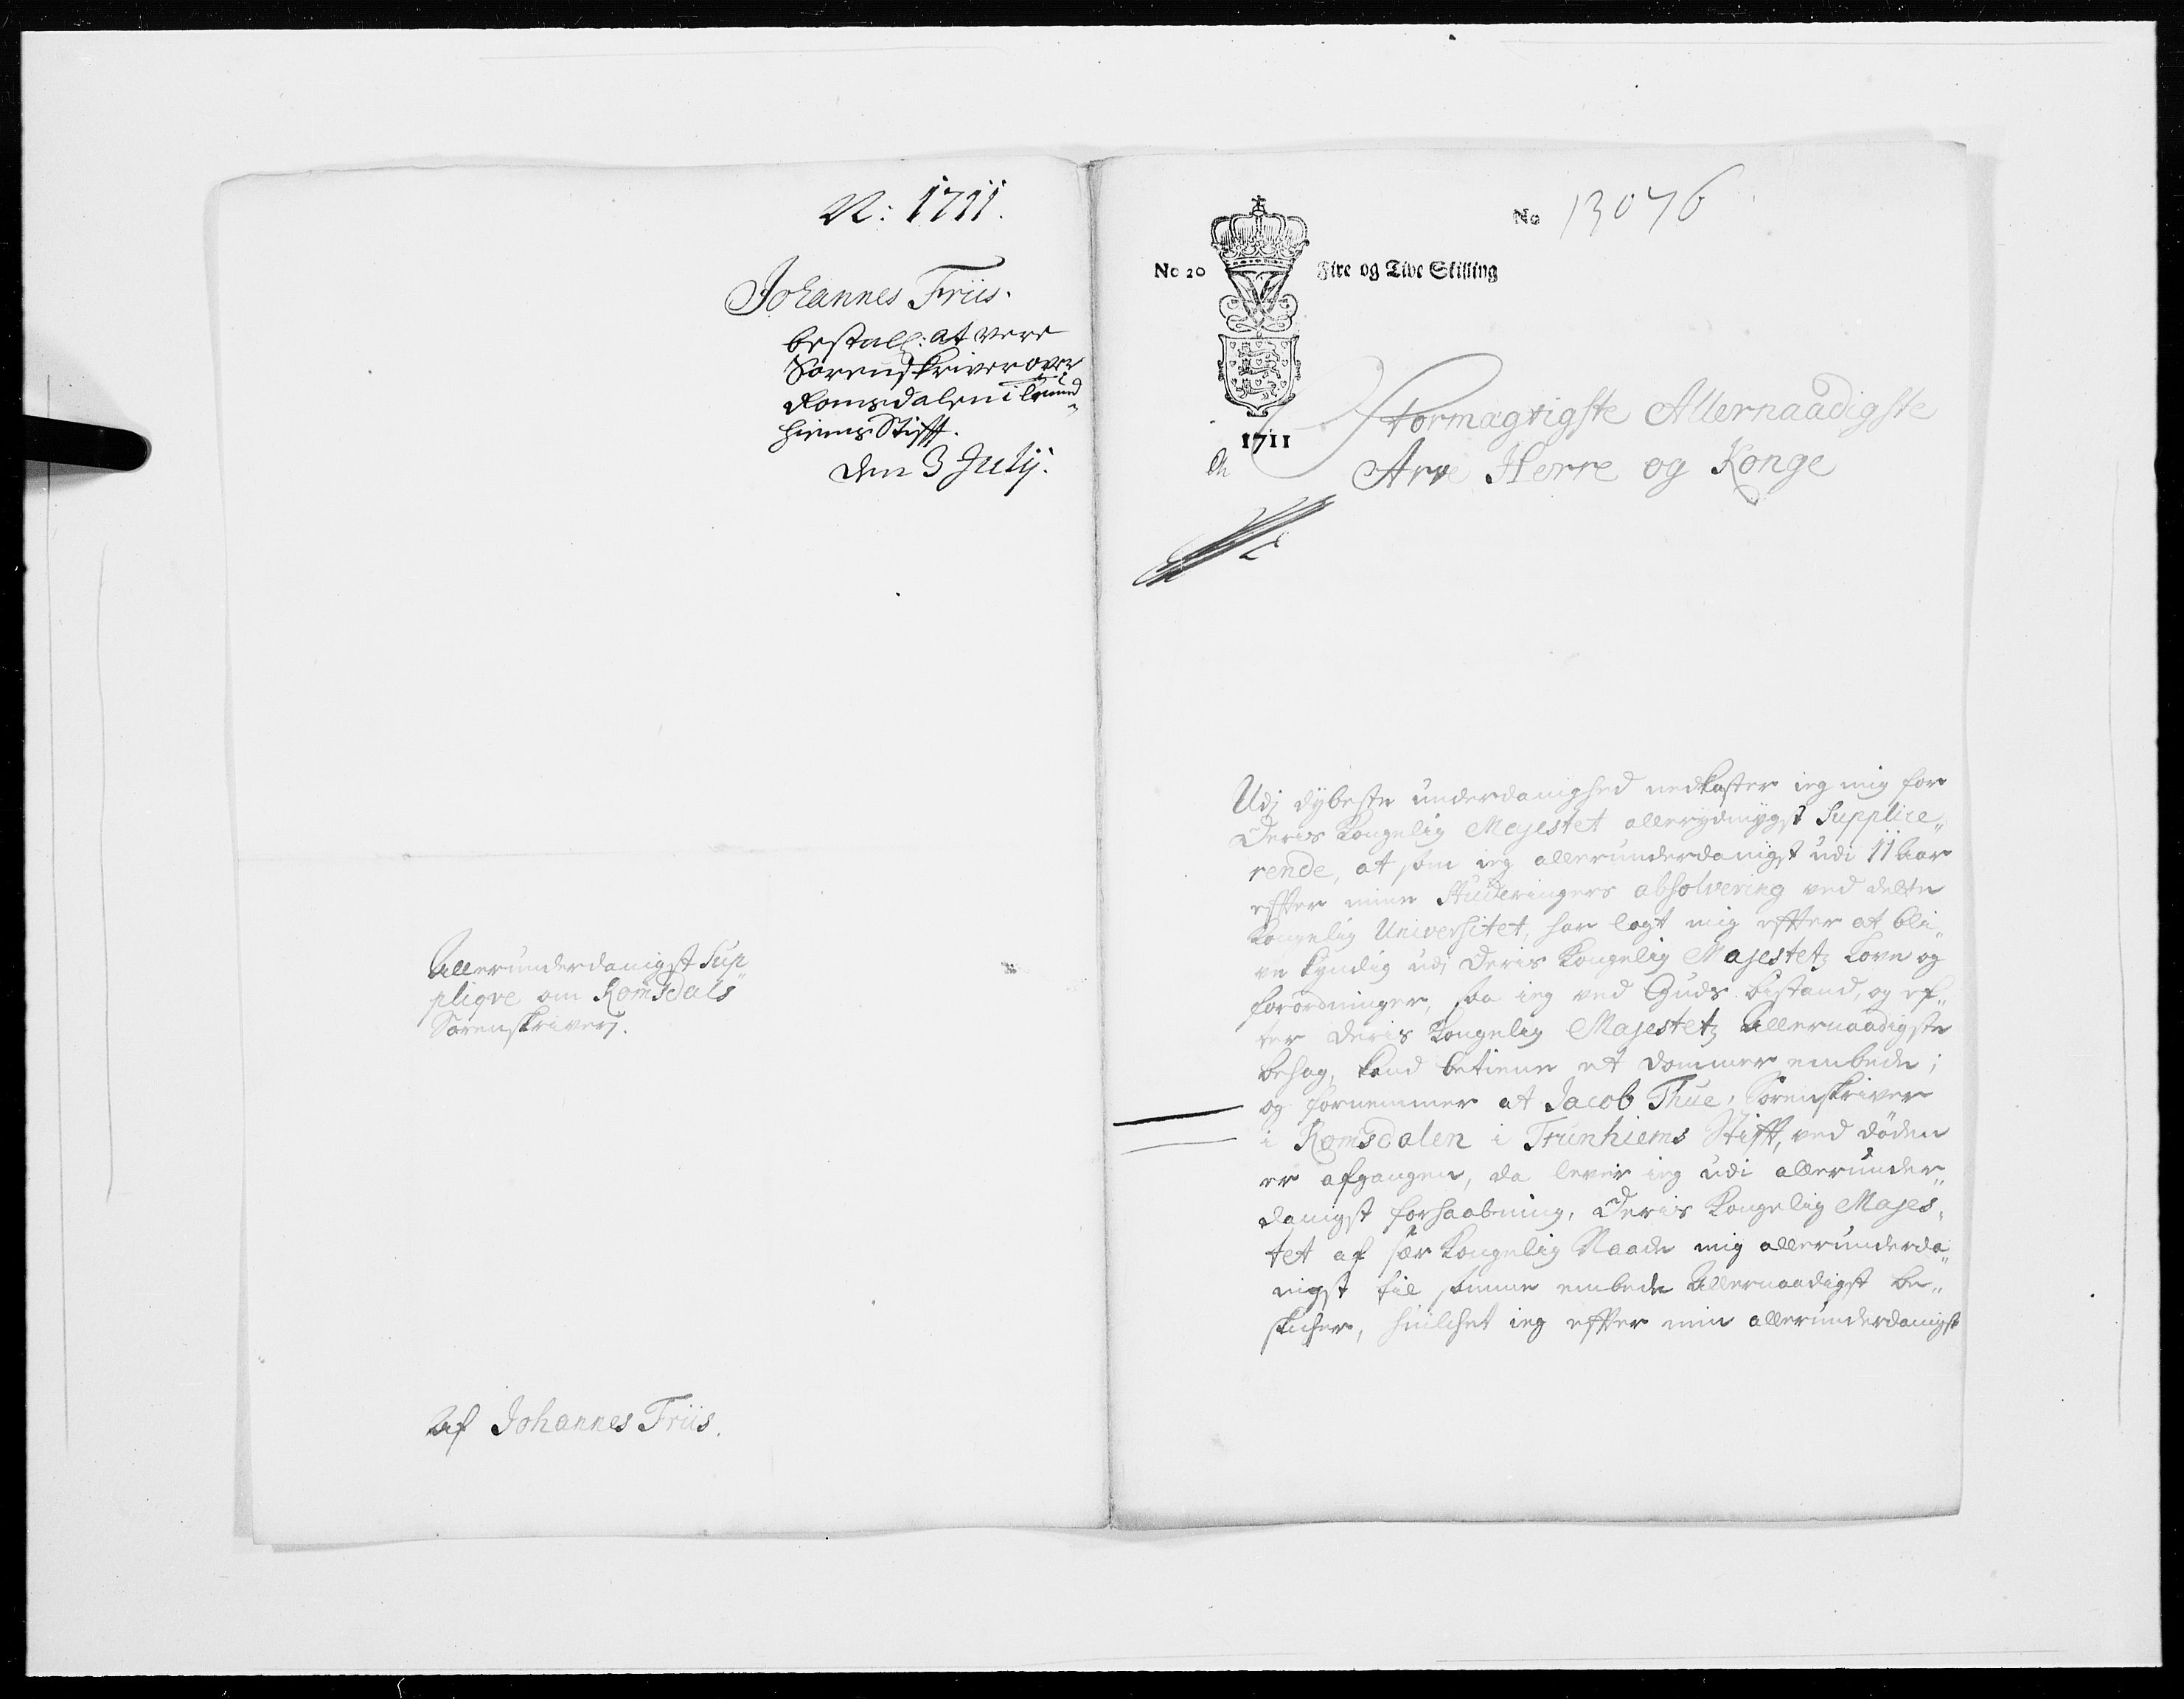 N: 1711.
Johannes Friis.
bestall: at vere
Sorenskriver over
Romsdalen i Trund¬
hiems Stifft.
den 3 Julij.
Allerunderdanigst Sup¬
pliqve om Romsdals
Sorenskriveri.
Af Johannes Friis.
No 13076
No 20 Fire og Tive Skilling
1711
Stormagtigste Allernaadigste
Arve Herre og Konge
Udj dybeste underdanighed nedkaster ieg mig for
Deris Kongelig Mejestet allerydmygst Supplice„
rende, at som ieg allerunderdanigst udi 11 Aar
effter mine Studeringers absolvering ved dette
Kongelig Universitet, har lagt mig effter at bli„
ve kyndig udj Deris Kongelig Majestetz Love og
forordninger, saa ieg ved Guds bistand, og ef„
ter Deris Kongelig Majestetz Allernaadigste
behag, kand betiene et dommer embede;
og fornemmer at Jacob Thue, Sorenskriver
i Romsdalen i Trunhiems Stifft, ved døden
er afgangen, da lever ieg udi allerunder„
danigst forhaabning, Deris Kongelig Majes„
tet af sær Kongelig Naade mig allerunderda„
nigst til samme embede Allernaadigst be„
skicker, hvilchet ieg effter min allerunderdanigst